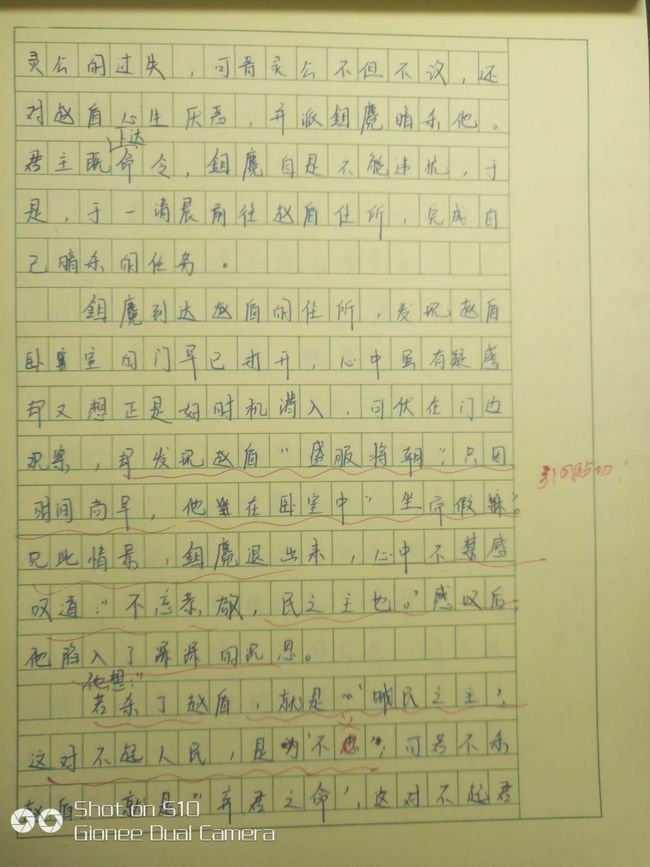 灵公的过失，可晋灵公不但不议，还
对赵盾心生厌恶，并派鉏魔暗杀他。
下达
君主既命令，鉏魔自是不能违抗，于
是，于一清晨前往赵盾住所，完成自
己暗杀的任务。
鉏魔到达赵盾的住所，发现赵盾
卧室的门早已打开，心中虽有疑惑
却又想正是好时机潜入，可伏在门边
观察，却发现赵盾“盛服将朝”，只因
时间尚早，他在卧室中“坐而假寐”。
引用贴切！
见此情景，鉏魔退出来，心中不禁感
叹道：“不忘恭敬，民之主也。”感叹后，
他陷入了深深的沉思。
他想：“
若杀了赵盾，就是“贼民之主”，
这对不起人民，是为“不忠”；可若不杀
赵盾，就是“弃君之命”，这对不起君
Shot on S10
Gionee Dual Camera